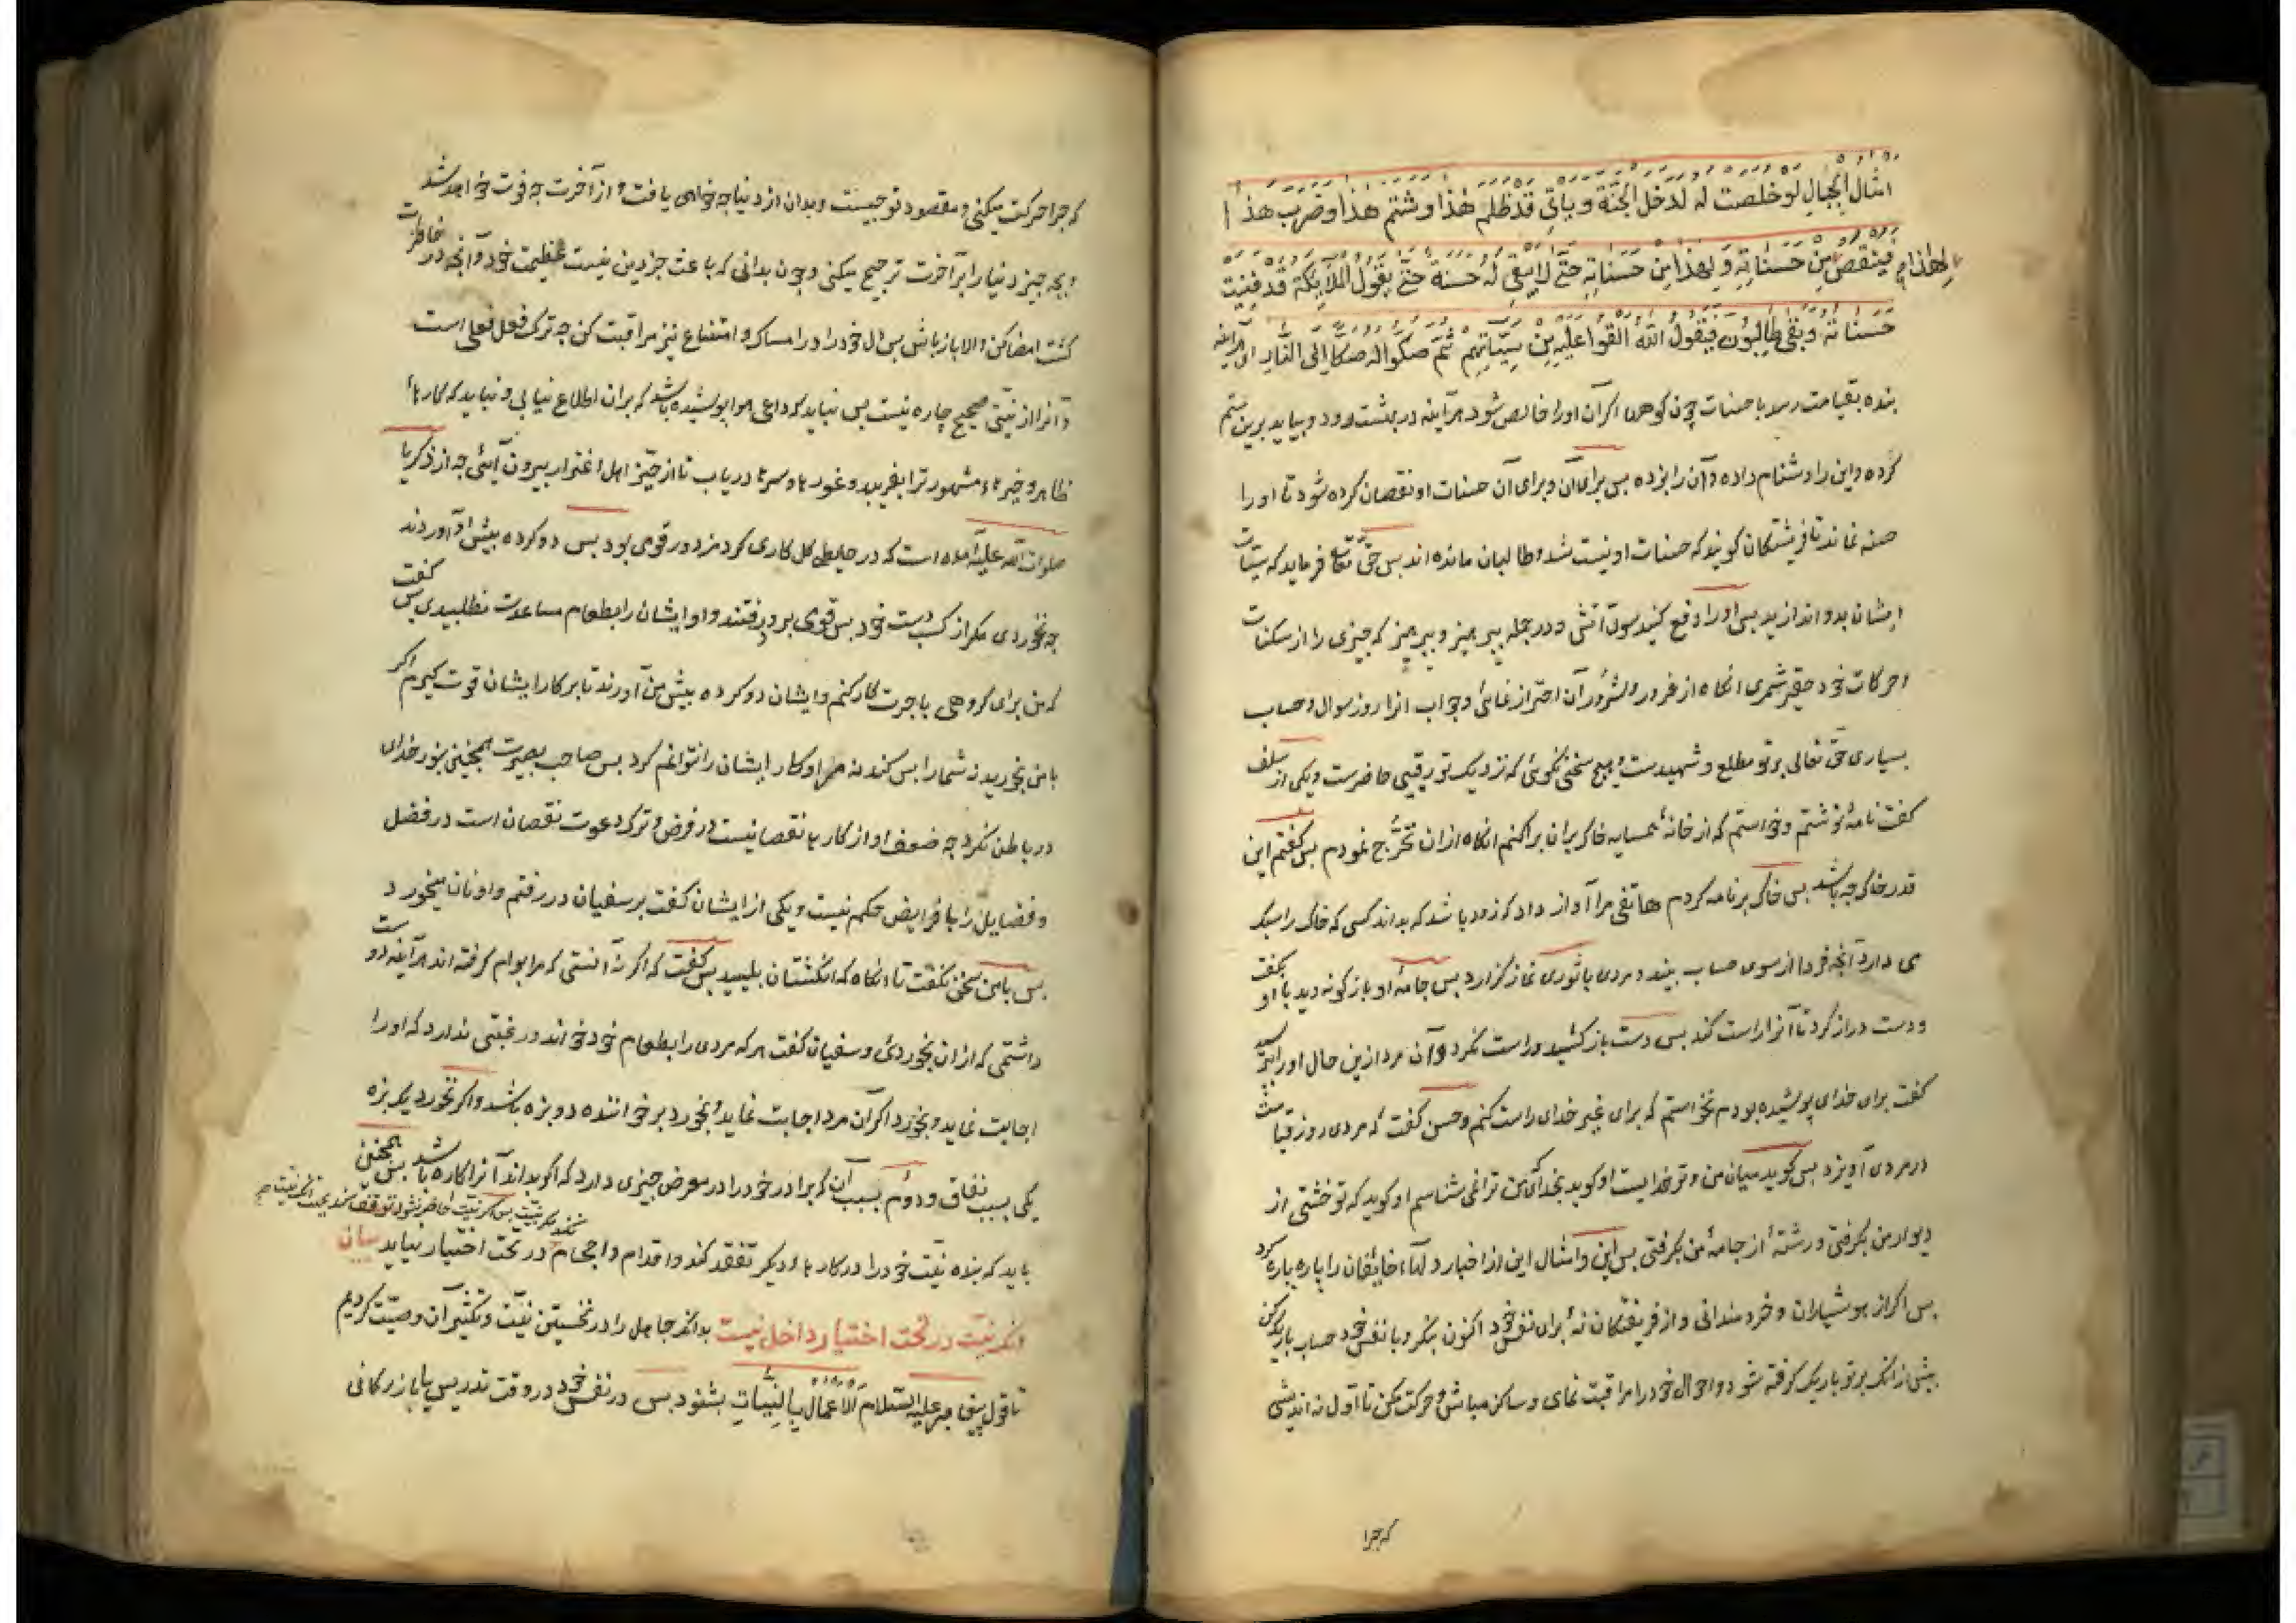 امثال الجبال لو خلصت له لدخل الجنة و یاتی قد ظلم هذا و شتم هذا و ضرب هذا
فینقص لهذا من حسناته و لهذا من حسناته حتی لا یبقی له حسنة حتی یقول الملائکة قد فنیت
حسناته و بقی طالبون فیقول الله القوا علیه من سیئاتهم ثم صکوا له صکا الی النار ای هرآینه
بنده بقیامت رسد با حسنات چون کوهها اگر آن اورا خالص شود هرآینه در بهشت رود و بیاید برین ستم
کرده و این را دشنام داده و آن را بزده پس برای آن و برای آن حسنات او نقصان کرده شود تا او را
حسنه نماند تا فریشتگان گویند که حسنات او نیست شد و طالبان مانده اند پس حق تعالی فرماید که سیئات
ایشان بدو اندازید پس او را دفع کنید سوی آتش و در جمله بپرهیز و بپرهیز که چیزی را از سکنات
و حرکات خود حقیر شمری انگاه از غرور و شرور آن احتراز ننمائی و جواب انرا روز سوال و حساب
بسیاری حق تعالی بر تو مطلع و شهیدست و هیچ سخنی نگوئی که نزدیک تو رقیبی حاضرست و یکی از سلف
گفت نامهٔ نوشتم و خواستم که از خانهٔ همسایه خاک بران پراکنم انگاه ازان تحرّج نمودم پس گفتم این
قدر خاک چه باشد پس خاک بر نامه کردم هاتفی مرا آواز داد که زود باشد که بداند کسی که خاک را سبک
می دارد آنچه فردا از سوی حساب بیند و مردی با ثوری نماز گزارد پس جامهٔ او بازگونه دید با او بگفت
و دست دراز کرد تا آنرا راست کند پس دست باز کشید و راست نکرد و آن مرد ازین حال او را بپرسید
گفت برای خدای پوشیده بودم نخواستم که برای غیر خدای راست کنم و حسن گفت که مردی روز قیامت
در مردی آویزد پس گوید میان من و تو خدایست او گوید بخدای که من ترا نمی شناسم او گوید که تو خشتی از
دیوار من بگرفتی و رشتهٔ از جامهٔ من بگرفتی پس این و امثال این از اخبار دلهاء خایفان را پاره پاره کرد
پس اگر از هوشیاران و خردمندانی و از فریفتگان نهٔ برای نفس خود اکنون بنگر و با نفس خود حساب باریک کن
پیش ازانکه بر تو باریک گرفته شود و احوال خود را مراقبت نمای و ساکن مباش و حرکت مکن تا اول نه اندیشی
که چرا
که چرا حرکت میکنی و مقصود تو چیست و بدان از دنیا چه خواهی یافت و از آخرت چه فوت خواهد شد
و بچه چیز دنیا را بر آخرت ترجیح میکنی و چون بدانی که باعث جز دین نیست عظیمت خود و آنچه در خاطرت
گشت امضا کن و الا باز باش پس دل خود را در امساک و امتناع نیز مراقبت کن چه ترک فعل فعلی است
و آنرا از نیتی صحیح چاره نیست پس نباید که داعی هوا پوشیده باشد که بران اطلاع نیابی و نباید که کارهاء
ظاهر و خیرهاء مشهور ترا بفریبد و غورها و سرها دریاب تا از حیّز اهل اغترار بیرون آیئی چه از زکریا
صلوات الله علیه آمده است که در حایطی گل کاری کرد مزدور قومی بود پس دو گرده پیش او آوردند
چه نخوردی مگر از کسب دست خود پس قومی برو رفتند و او ایشان را بطعام مساعدت نطلبید پس گفت
که من برای گروهی باجرت کار کنم و ایشان دو گرده پیش من آورند تا بر کار ایشان قوت گیرم اگر
با من بخورید نه شما را بس کند نه مرا و کار ایشان را نتوانم کرد پس صاحب بصیرت همچنین بنور خدای
در باطن نگرد چه ضعف او از کارها نقصانیست در فرض و ترک دعوت نقصان است در فضل
و فضایل را با فرایض حکم نیست و یکی از ایشان گفت بر سفیان در رفتم و او نان میخورد
پس با من سخن نگفت تا انگاه که انگشتان بلیسید پس گفت که اگر نه آنستی که مرا بوام گرفته اند هرآینه دوست
داشتمی که ازان بخوردی و سفیان گفت هر که مردی را بطعام خود خواند و رغبتی ندارد که او را
اجابت نماید و بخورد اگر آن مرد اجابت نماید و بخورد بر خواننده دو بزه باشد و اگر نخورد یک بزه
یکی بسبب نفاق و دوم بسبب آن که برادر خود را در معرض چیزی دارد که اگر بداند آنرا کاره باشد پس همچنین
باید که بنده نیت خود را در کارهاء دیگر تفقد کند و اقدام و احجام در تحت اختیار نیاید بیان
نکند مگر بنیت پس اگر نیت حاضر نشود توقف کند
انکه نیت در تحت اختیار داخل نیست بدانکه جاهل را در تحسین نیت و تکثیر آن وصیت کردیم
تا قول پیغامبر علیه السلام الاعمال بالنیات بشنود پس در نفس خود در وقت تدریس یا بازرگانی